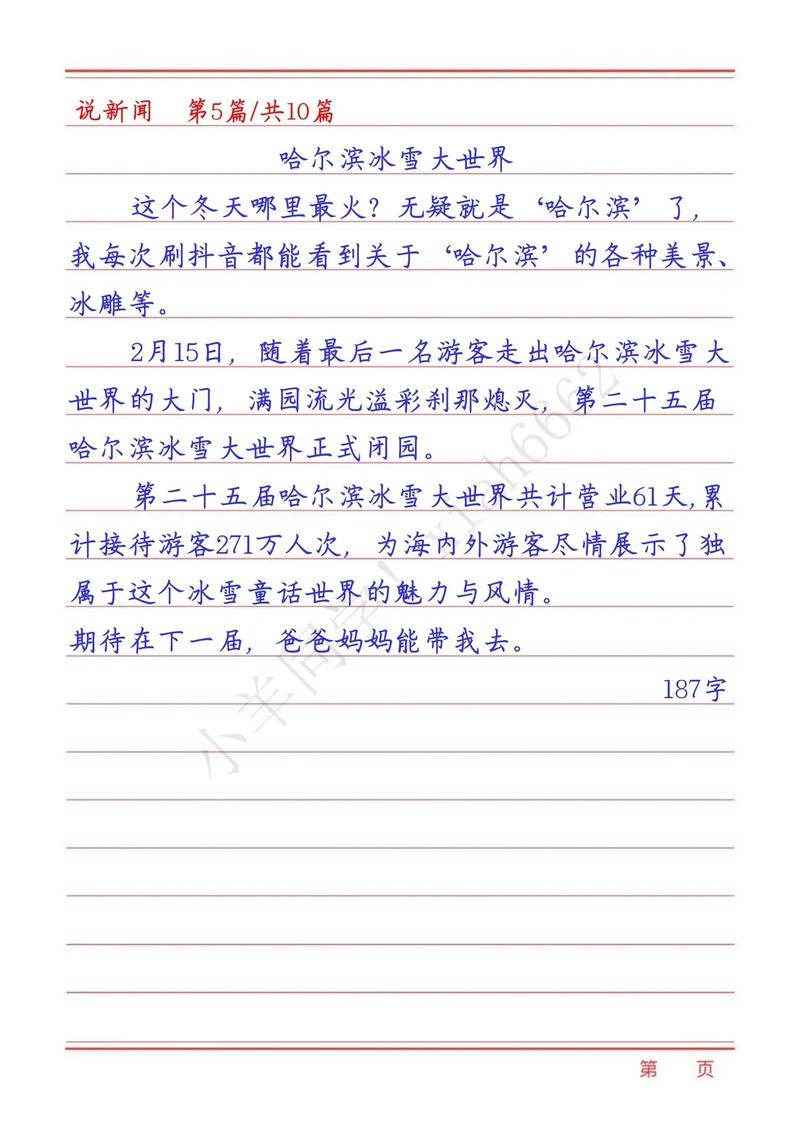 说新闻 第5篇/共10篇
哈尔滨冰雪大世界
这个冬天哪里最火？无疑就是‘哈尔滨’了，
我每次刷抖音都能看到关于‘哈尔滨’的各种美景、
冰雕等。
2月15日，随着最后一名游客走出哈尔滨冰雪大
世界的大门，满园流光溢彩刹那熄灭，第二十五届
哈尔滨冰雪大世界正式闭园。
第二十五届哈尔滨冰雪大世界共计营业61天,累
计接待游客271万人次，为海内外游客尽情展示了独
属于这个冰雪童话世界的魅力与风情。
期待在下一届，爸爸妈妈能带我去。
187字
第 页